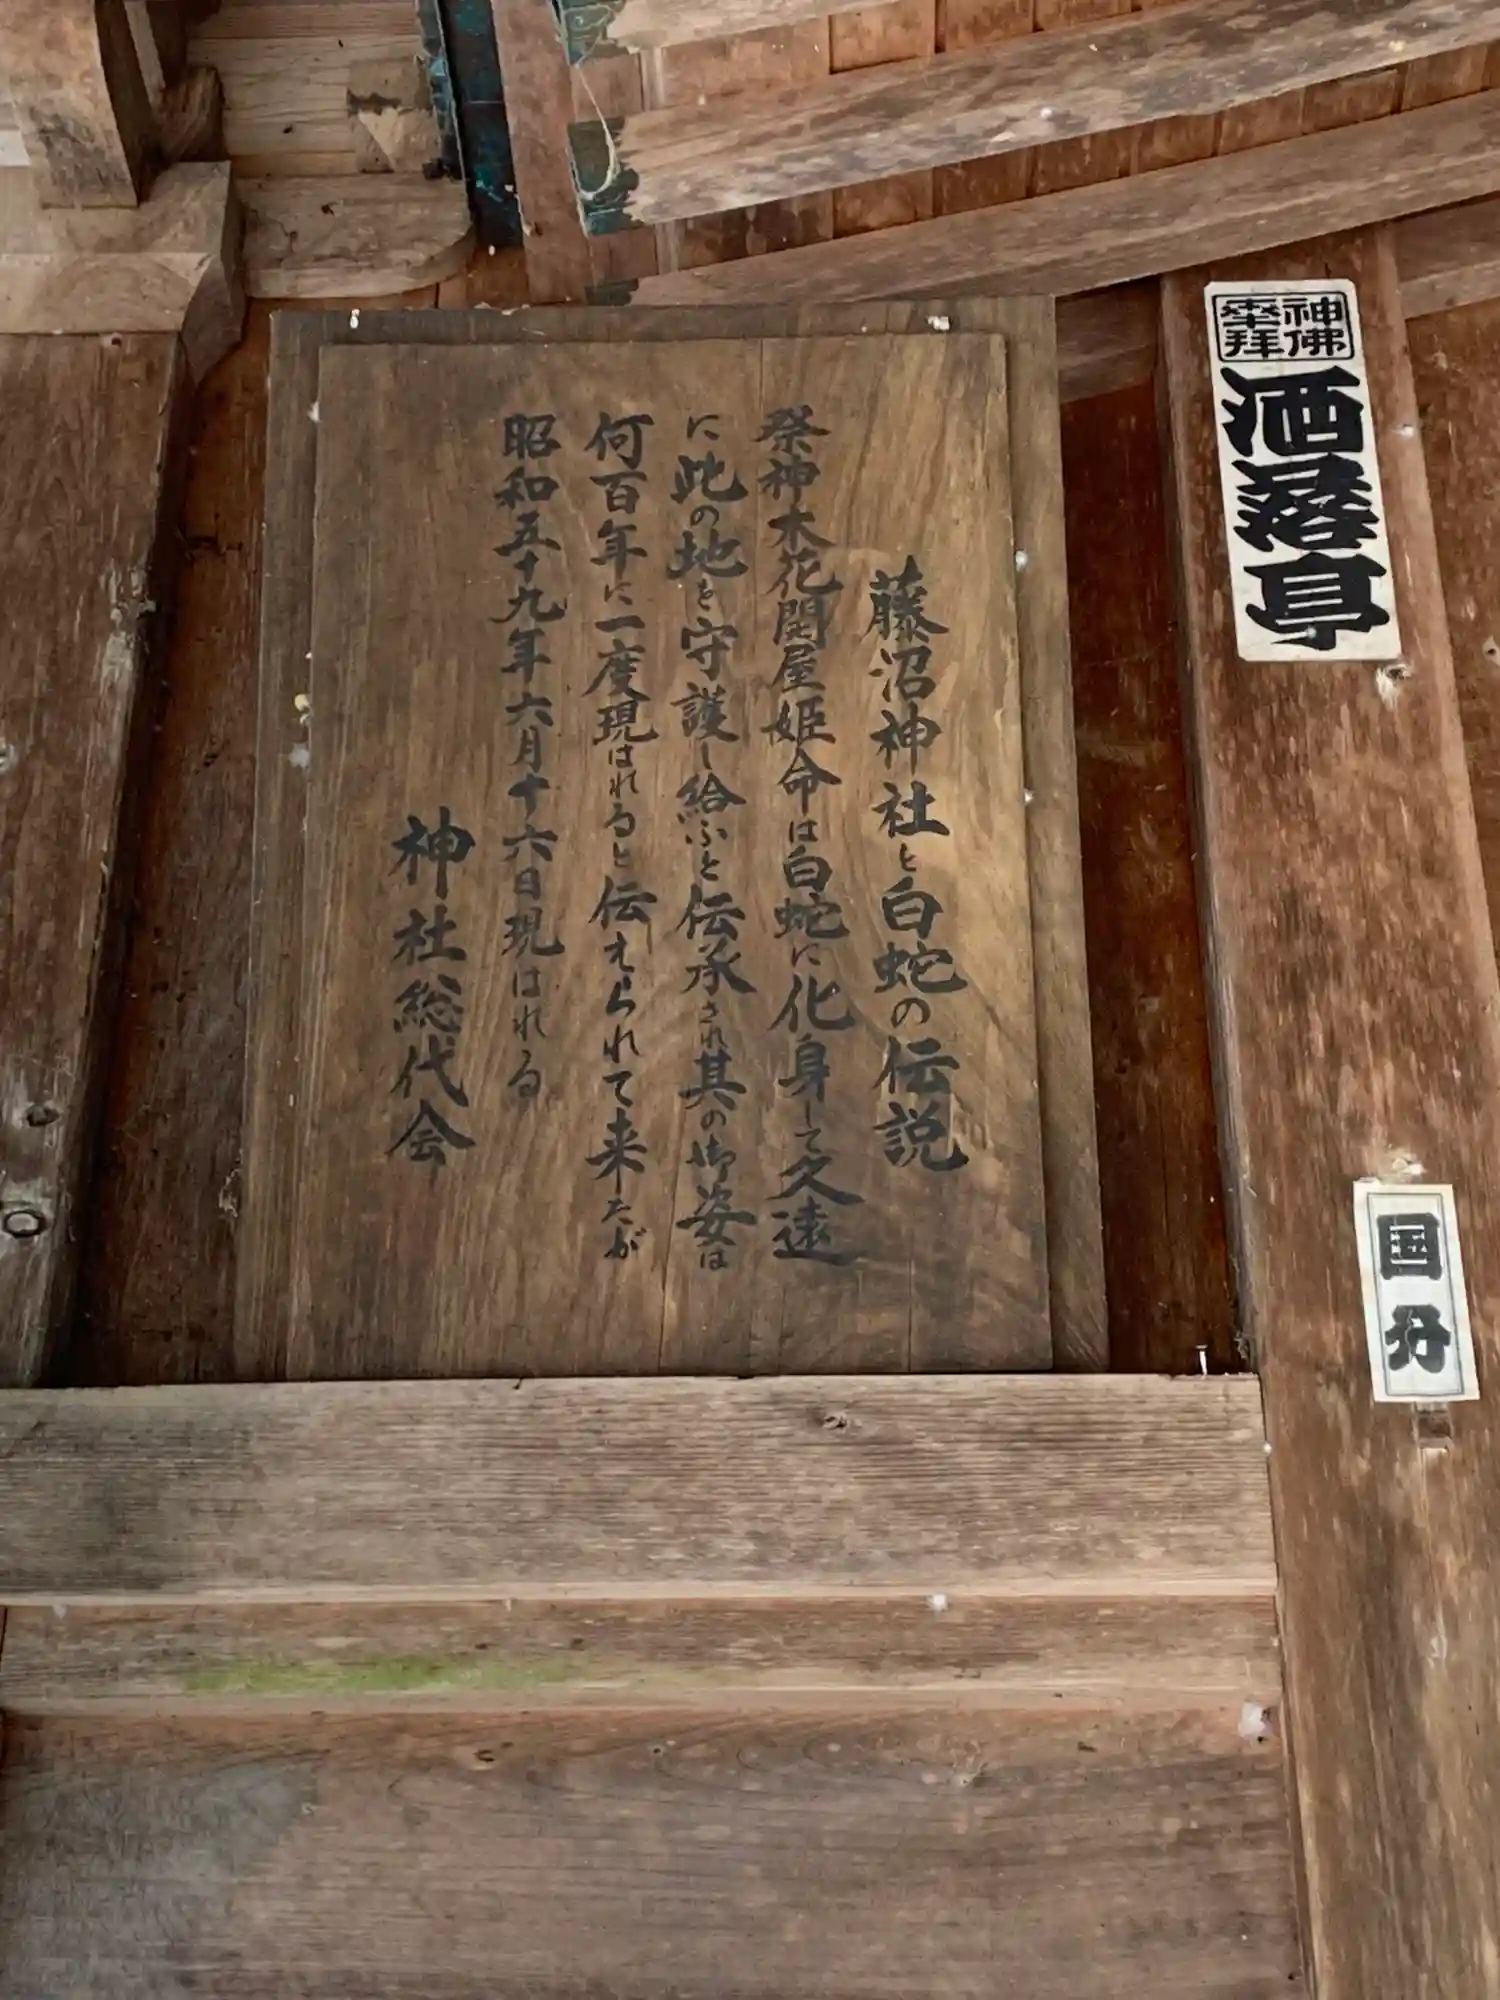 藤沼神社と白蛇の伝説
祭神木花開屋姫命は白蛇に化身して久遠
に此の地を守護し給ふと伝承され其の御姿は
何百年に一度現はれると伝えられて来たが
昭和五十九年六月十六日現はれる
神社総代会
神佛
奉拜
洒落亭
国分